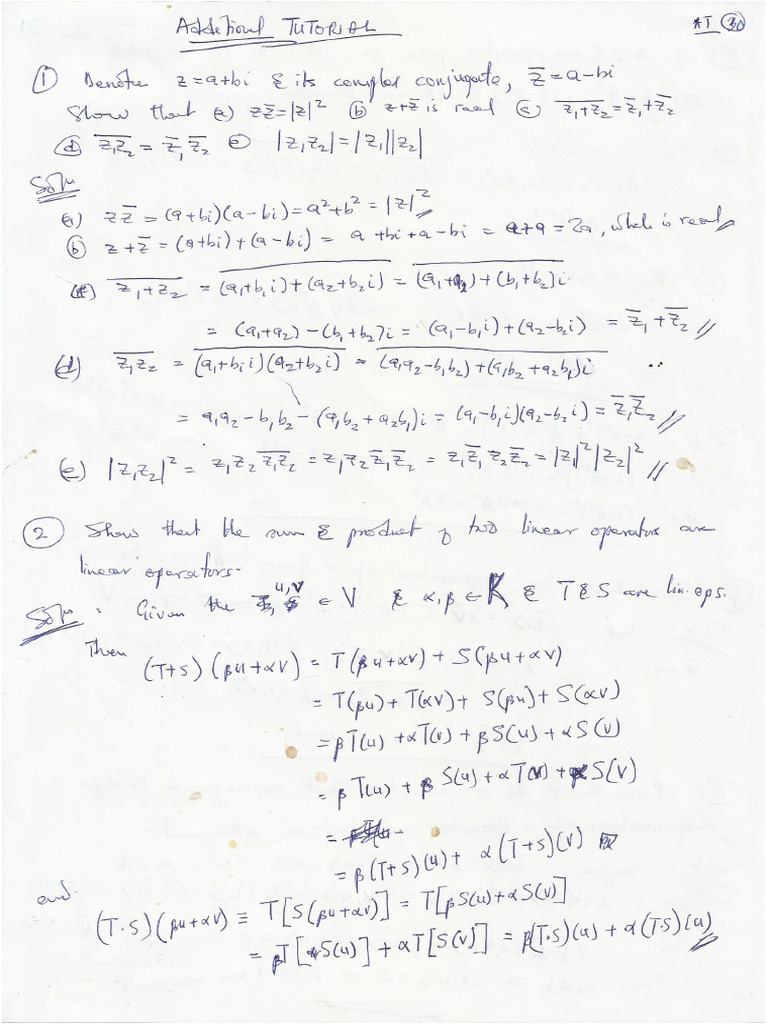 Additional TUTORIAL
AT 30
① Denote z=a+bi & its complex conjugate, z̅=a-bi
Show that (a) zz̅=|z|² (b) z+z̅ is real (c) \overline{z₁+z₂}=z̅₁+z̅₂
(d) \overline{z₁z₂}=z̅₁z̅₂ (e) |z₁z₂|=|z₁||z₂|
Soln
(a) zz̅=(a+bi)(a-bi)=a²+b²=|z|²//
(b) z+z̅=(a+bi)+(a-bi)= a+bi+a-bi = a+a=2a, which is real//
(c) \overline{z₁+z₂} = \overline{(a₁+b₁i)+(a₂+b₂i)} = \overline{(a₁+a₂)+(b₁+b₂)i}
= (a₁+a₂)-(b₁+b₂)i = (a₁-b₁i)+(a₂-b₂i) = z̅₁+z̅₂//
(d) \overline{z₁z₂} = \overline{(a₁+b₁i)(a₂+b₂i)} = \overline{(a₁a₂-b₁b₂)+(a₁b₂+a₂b₁)i}
= a₁a₂-b₁b₂-(a₁b₂+a₂b₁)i = (a₁-b₁i)(a₂-b₂i) = z̅₁z̅₂//
(e) |z₁z₂|² = z₁z₂\overline{z₁z₂} = z₁z₂z̅₁z̅₂ = z₁z̅₁z₂z̅₂ = |z₁|²|z₂|²//
② Show that the sum & product of two linear operators are
linear operators.
Soln: Given the u,v ∈ V & α,β ∈ K & T&S are lin. ops.
Then
(T+S)(βu+αv) = T(βu+αv)+S(βu+αv)
= T(βu)+T(αv)+S(βu)+S(αv)
= βT(u)+αT(v)+βS(u)+αS(v)
= βT(u)+βS(u)+αT(v)+αS(v)
=
= β(T+S)(u)+α(T+S)(v)
and
(T·S)(βu+αv) ≡ T[S(βu+αv)] = T[βS(u)+αS(v)]
= βT[S(u)]+αT[S(v)] = β(T·S)(u)+α(T·S)(u)//